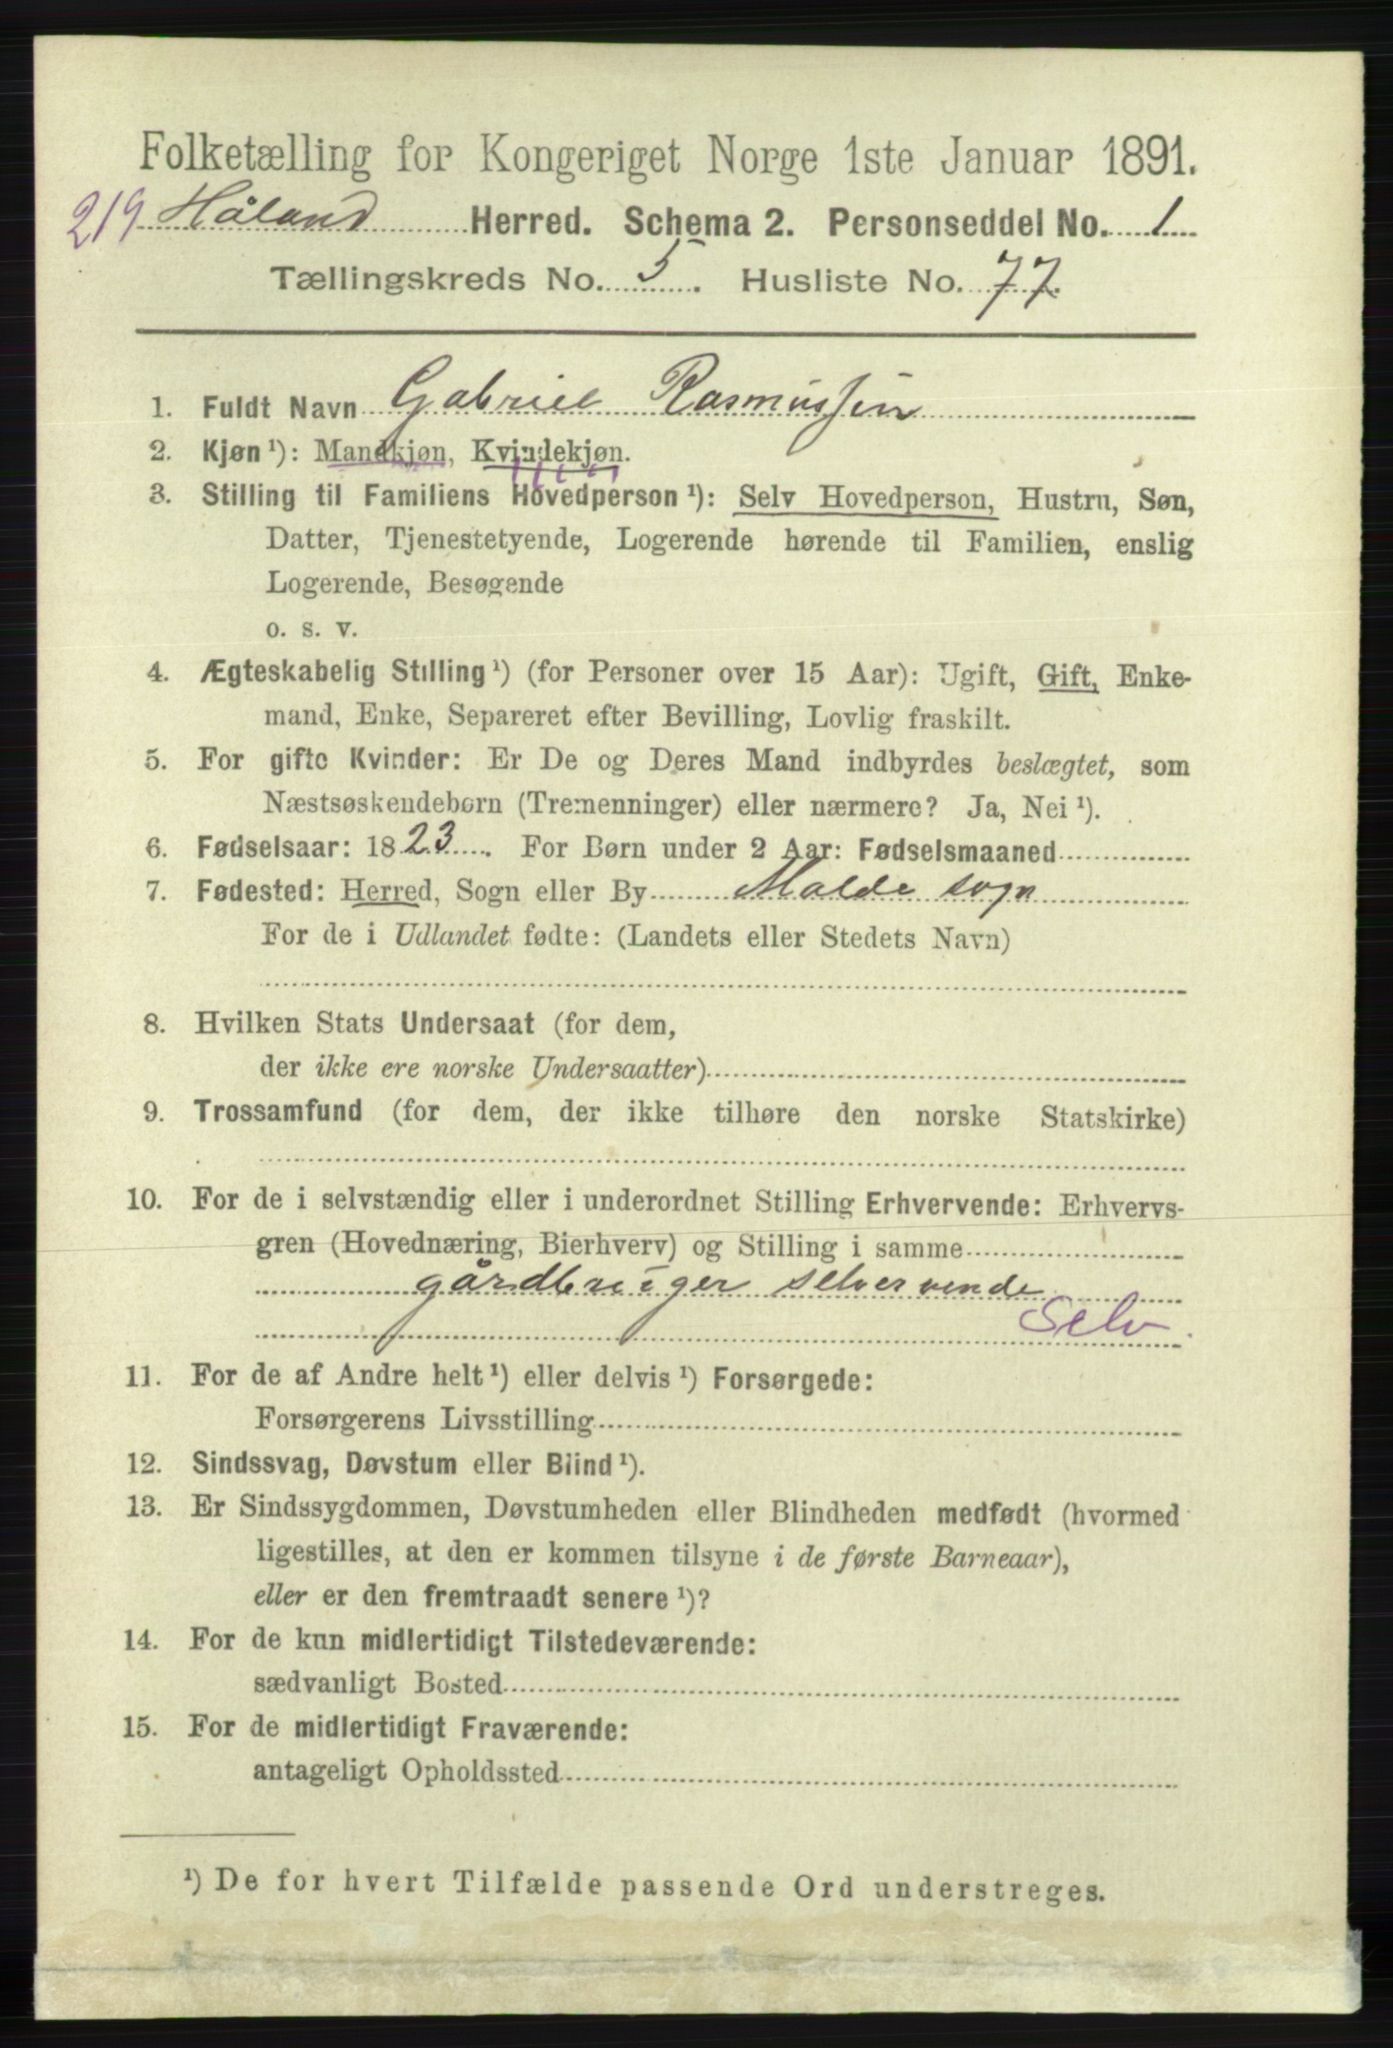 Folketælling for Kongeriget Norge 1ste Januar 1891.
219 Håland Herred. Schema 2. Personseddel No. 1
Tællingskreds No. 5. Husliste No. 77.
1. Fuldt Navn Gabriel Rasmussen
2. Kjøn ¹): Mandkjøn, Kvindekjøn.
3. Stilling til Familiens Hovedperson ¹): Selv Hovedperson, Hustru, Søn,
Datter, Tjenestetyende, Logerende hørende til Familien, enslig
Logerende, Besøgende
o. s. v.
4. Ægteskabelig Stilling ¹) (for Personer over 15 Aar): Ugift, Gift, Enke-
mand, Enke, Separeret efter Bevilling, Lovlig fraskilt.
5. For gifte Kvinder: Er De og Deres Mand indbyrdes beslægtet, som
Næstsøskendebørn (Tremenninger) eller nærmere? Ja, Nei ¹).
6. Fødselsaar: 1823. For Børn under 2 Aar: Fødselsmaaned
7. Fødested: Herred, Sogn eller By Malde sogn
For de i Udlandet fødte: (Landets eller Stedets Navn)
8. Hvilken Stats Undersaat (for dem,
der ikke ere norske Undersaatter)
9. Trossamfund (for dem, der ikke tilhøre den norske Statskirke)
10. For de i selvstændig eller i underordnet Stilling Erhvervende: Erhvervs-
gren (Hovednæring, Bierhverv) og Stilling i samme
gårdbruger selvervende
Selv
11. For de af Andre helt ¹) eller delvis ¹) Forsørgede:
Forsørgerens Livsstilling
12. Sindssvag, Døvstum eller Blind ¹).
13. Er Sindssygdommen, Døvstumheden eller Blindheden medfødt (hvormed
ligestilles, at den er kommen tilsyne i de første Barneaar),
eller er den fremtraadt senere ¹)?
14. For de kun midlertidigt Tilstedeværende:
sædvanligt Bosted
15. For de midlertidigt Fraværende:
antageligt Opholdssted
¹) De for hvert Tilfælde passende Ord understreges.